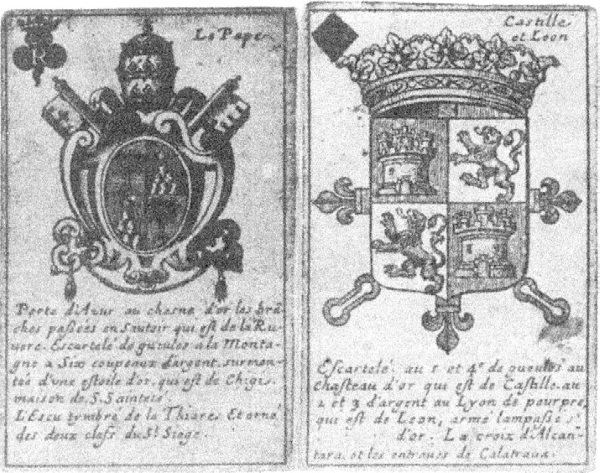 R
Le Pape
Porte d'Azur au chesne d'or les brâ
ches passees en Sautoir qui est de la Ru
uere. Escartelé de gueules a la Monta
gne a Six coupeaux d'argent, surmon
tée d'une estoile d'or, qui est de Chigis
maison de S. Sainteté.
L'Escu tymbré de la Thiare. Et orné
des deux clefs du St Siege.
Castille
et Leon
Escartelé au 1 et 4e de gueules au
Chasteau d'or qui est de Castille. au
2 et 3 d'argent au Lyon de pourpre,
qui est de Leon, armé lampassé
d'or. La croix d'Alcan
tara, et les entraues de Calatraua.